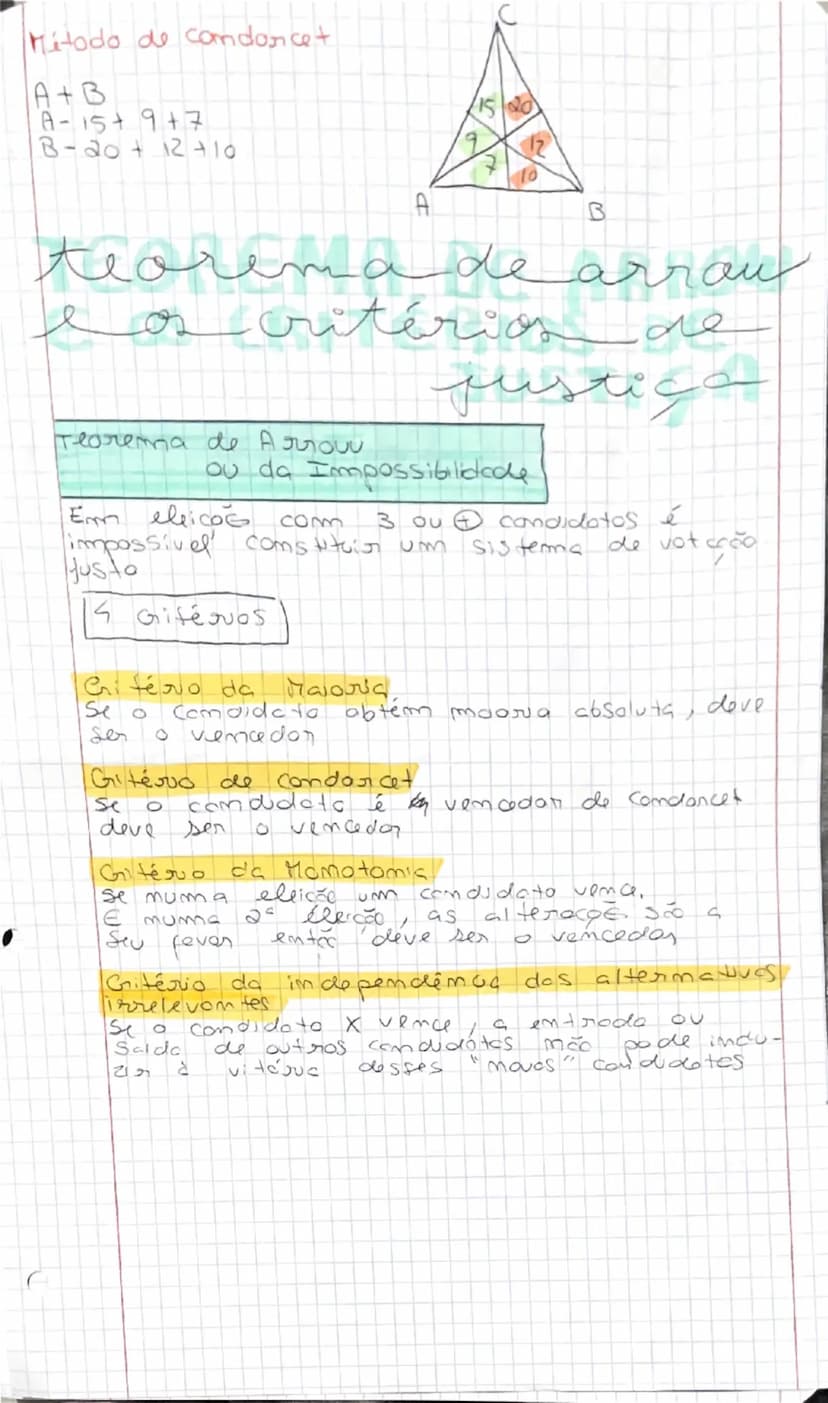 Método de condorcet
A + B
A - 15 + 9 + 7
B - 20 + 12 + 10
C
15 20
9 12
7 10
A B
teorema de arrow
e os critérios de
justiça
Teorema de Arrow
ou da Impossibilidade
Em eleições com 3 ou + candidatos é
impossível constituir um sistema de votação
justo
4 critérios
Critério da Maioria
Se o candidato obtém maoria absoluta, deve
ser o vencedor
Critério de condorcet
Se o candidato é vencedor de condorcet
deve ser o vencedor
Critério da Monotomia
Se numa eleição um candidato vence.
E numa 2ª eleição, as alteraçõe são a
Seu favor então deve ser o vencedor
Critério da independência das alternativas
irrelevantes
Se o candidato X vence, a entrada ou
Saída de outros candidatos não pode indu-
zir à vitória desses "novos" candidatos